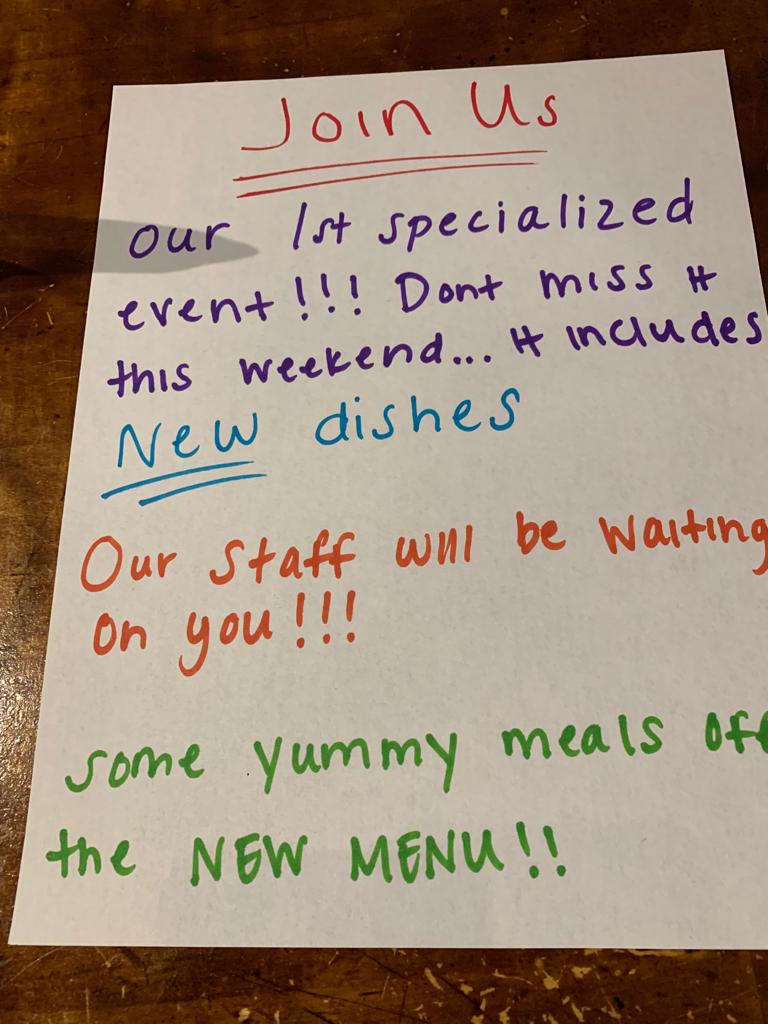 Join Us
Our 1st specialized
event!!! Dont miss it
this weekend... It includes
New dishes
Our Staff will be waiting
on you!!!
some yummy meals off
the NEW MENU!!